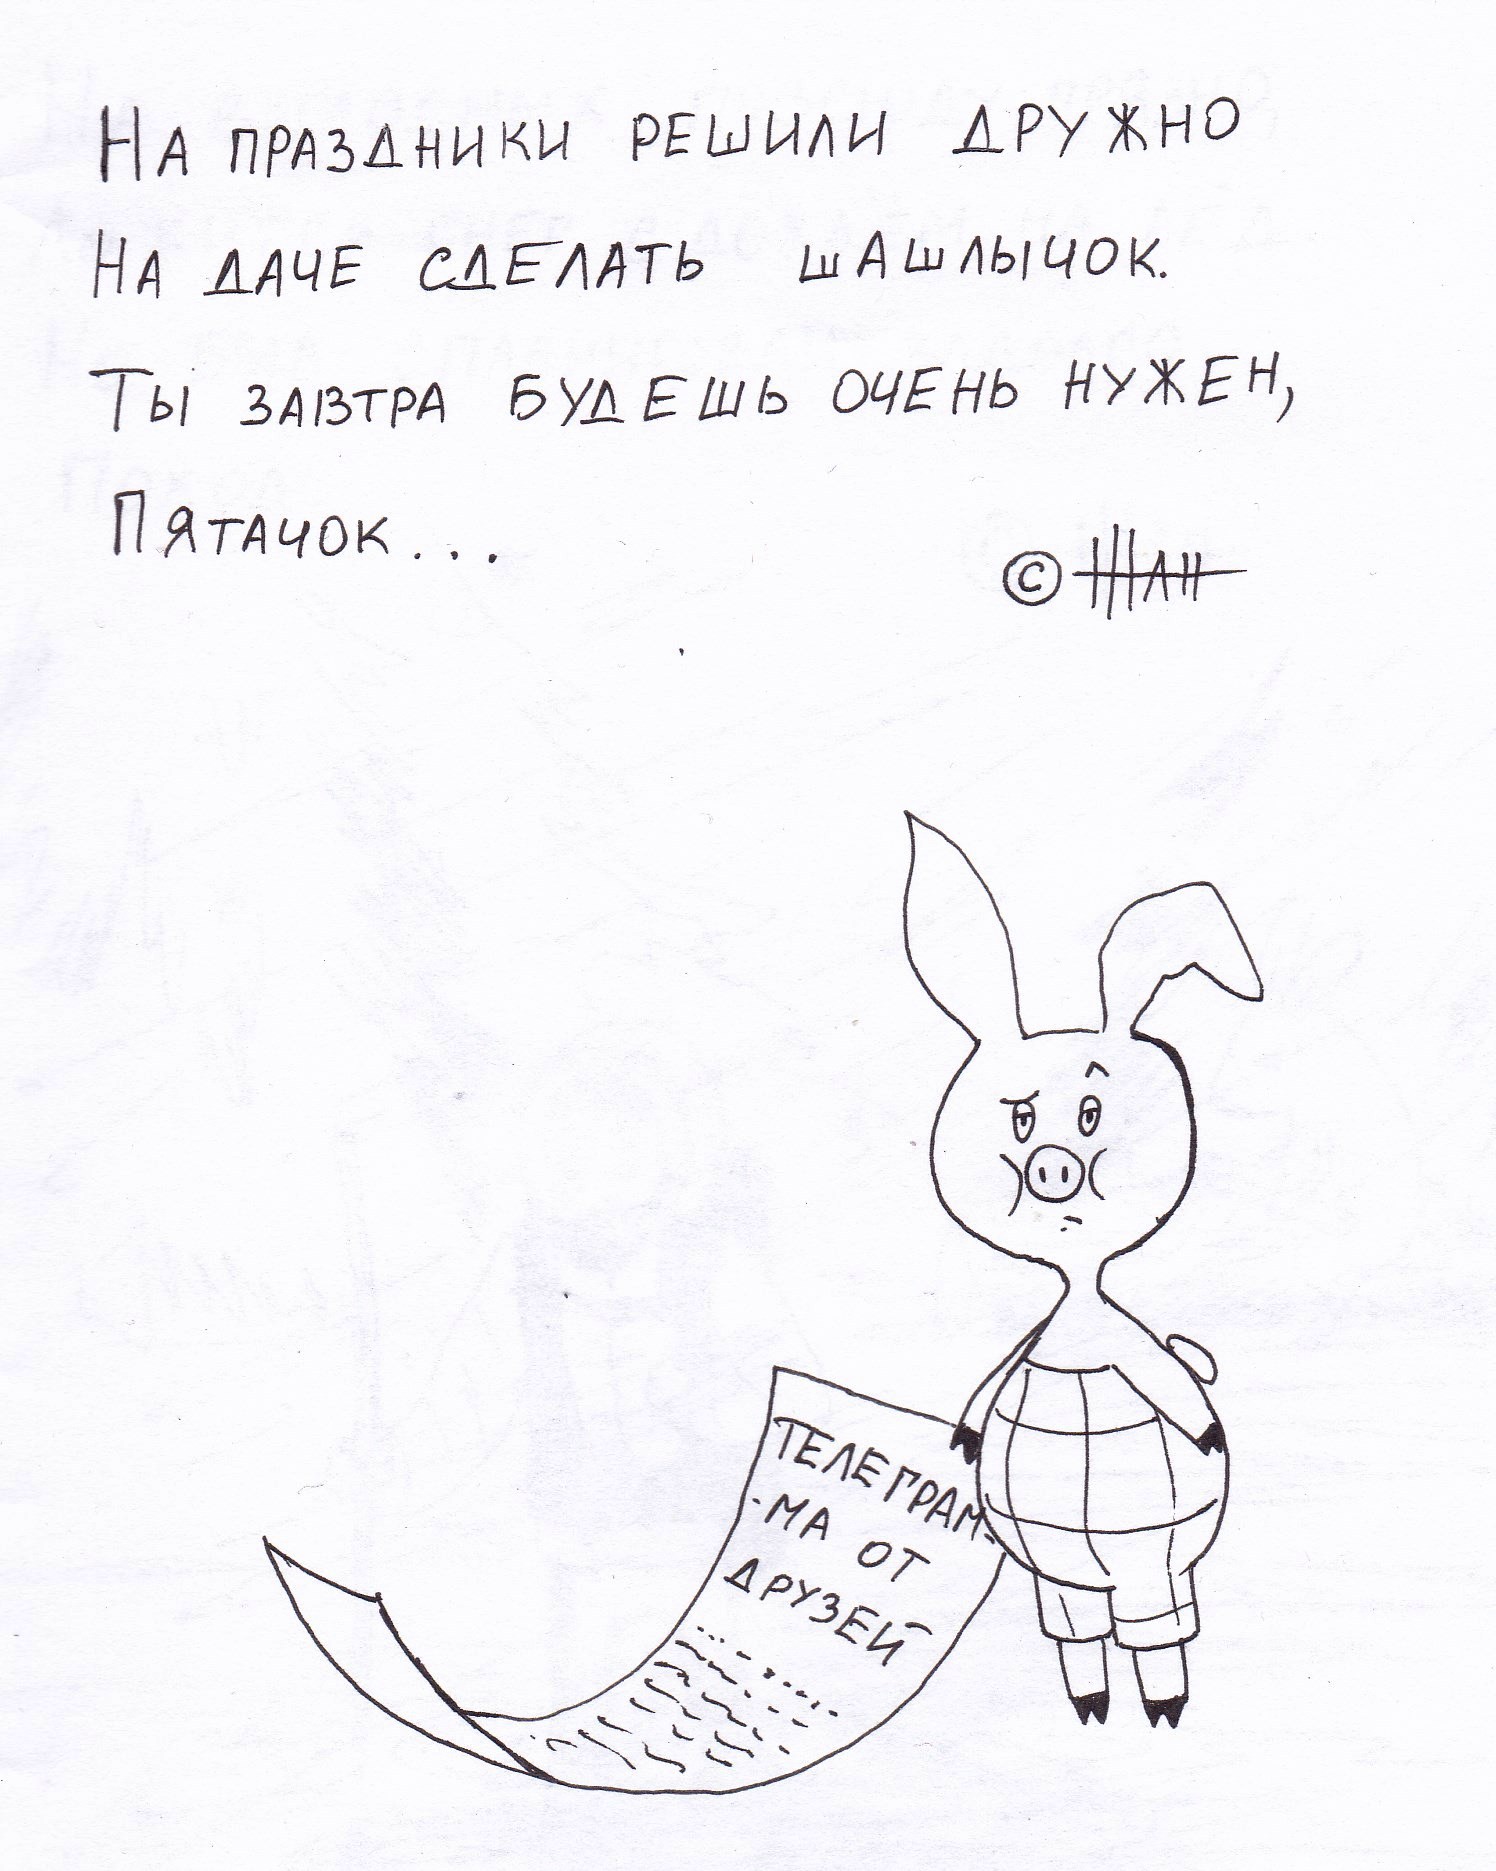 На праздники решили дружно
На даче сделать шашлычок.
Ты завтра будешь очень нужен,
Пятачок...
© ЖАН
ТЕЛЕГРАМ-
-МА ОТ
ДРУЗЕЙ